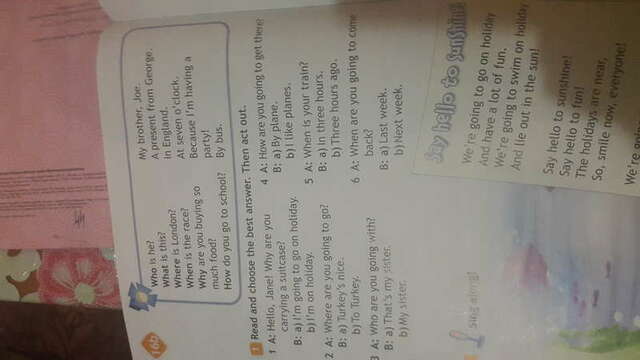 16b
Who is he?
What is this?
Where is London?
When is the race?
Why are you buying so
much food?
How do you go to school?
My brother, Joe.
A present from George.
In England.
At seven o'clock.
Because I'm having a
party!
By bus.
1 Read and choose the best answer. Then act out.
1 A: Hello, Jane! Why are you
carrying a suitcase?
B: a) I'm going to go on holiday.
b) I'm on holiday.
2 A: Where are you going to go?
B: a) Turkey's nice.
b) To Turkey.
3 A: Who are you going with?
B: a) That's my sister.
b) My sister.
4 A: How are you going to get there?
B: a) By plane.
b) I like planes.
5 A: When is your train?
B: a) In three hours.
b) Three hours ago.
6 A: When are you going to come
back?
B: a) Last week.
b) Next week.
Sing along!
Say hello to sunshine
We're going to go on holiday
And have a lot of fun.
We're going to swim on holiday
And lie out in the sun!
Say hello to sunshine!
Say hello to fun!
The holidays are near,
So, smile now, everyone!
We're